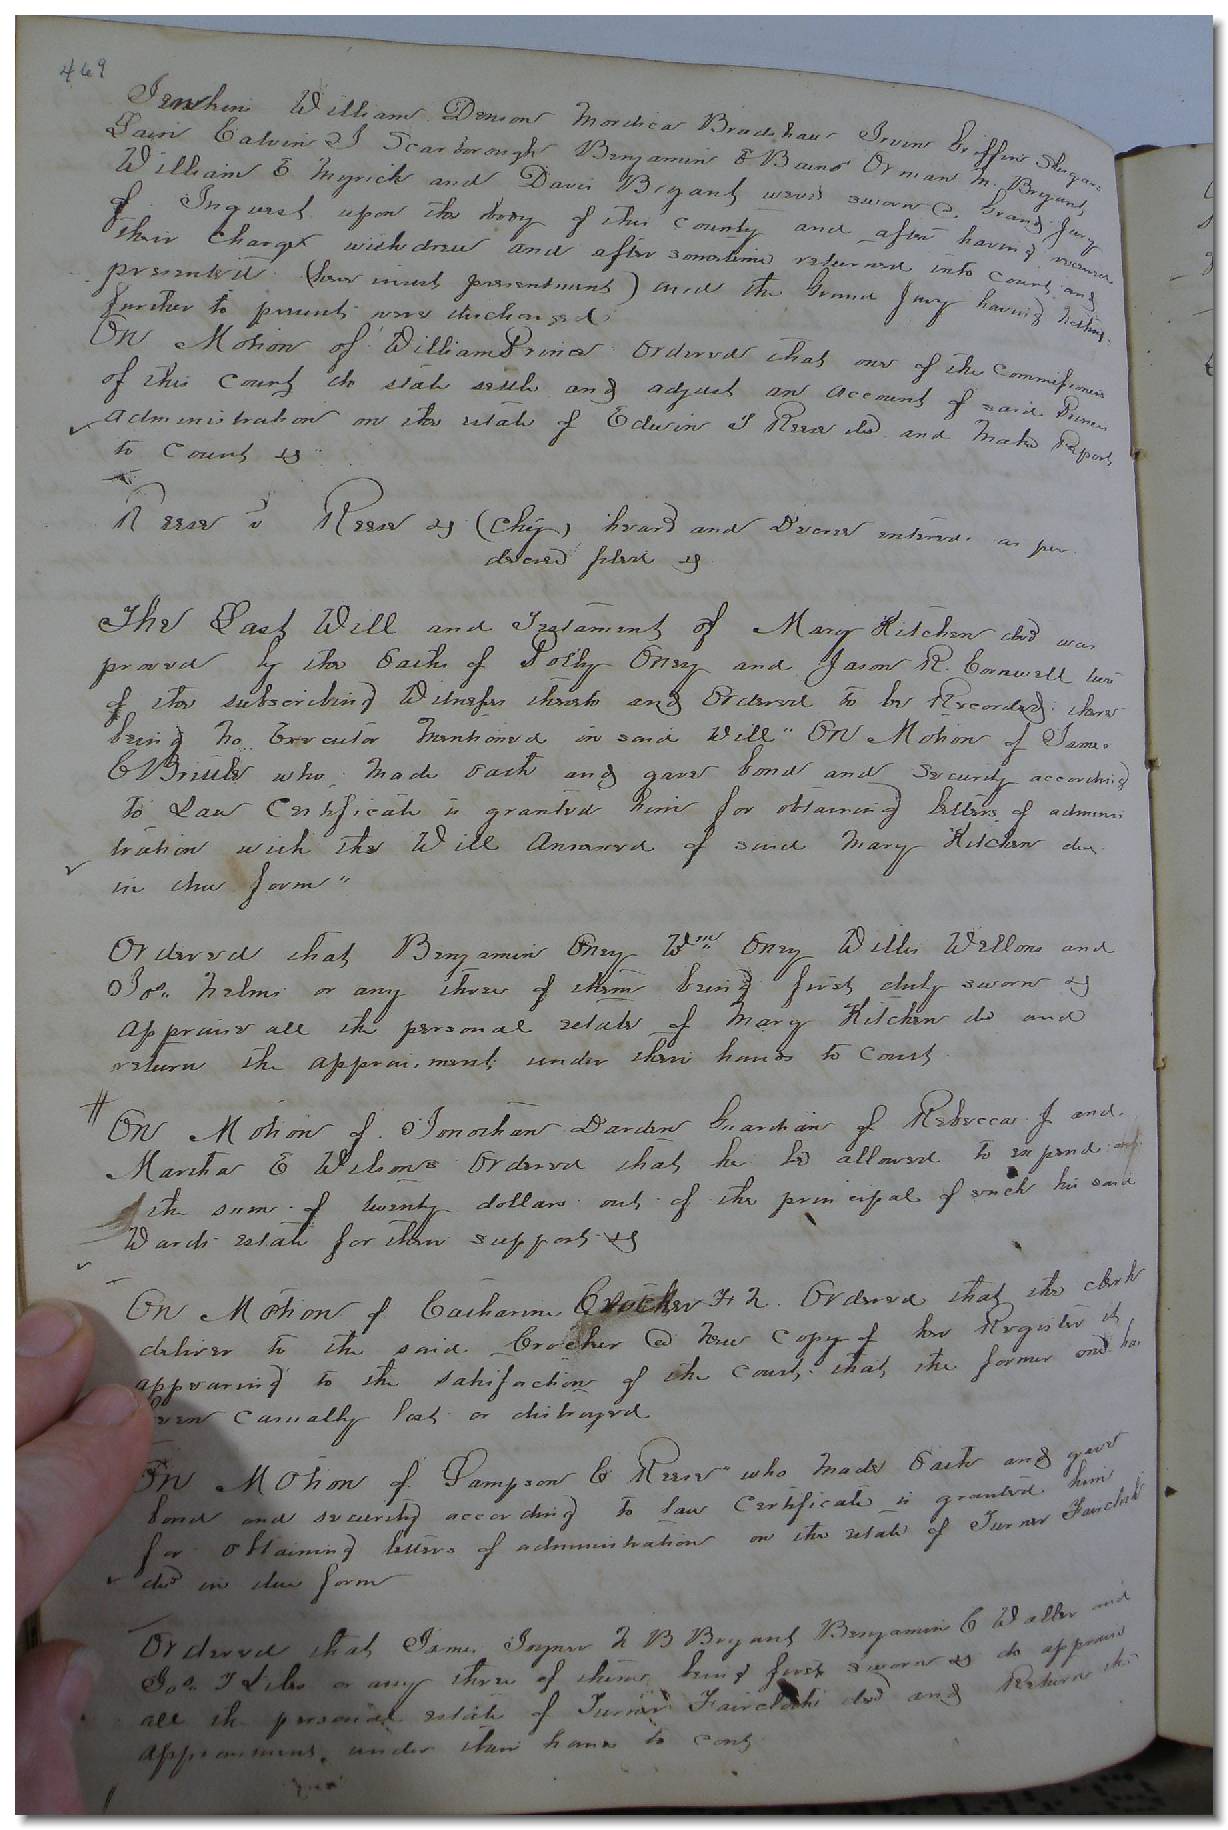 469
Jenkins William Denson Mordica Bradshaw Irvin Griffin
Lain Calvin J Scarborough Benjamin E Bains Orman M. Bryant
William E Myrick and Davis Bryant were sworn a Grand Jury
of Inquest upon the body of this county and after having received
their charge withdrew and after sometime returned into court and
presented (here insert presentment) and the Grand Jury having nothing
further to present were discharged
On Motion of William Prince Ordered that one of the Commissioners
of this court do state settle and adjust an account of said Princes
Administration on the estate of Edwin J Reese decd and make Report
to Court &
Reese v Reese &c (Chy) heard and Decree entered as per
decree filed &c
The Last Will and Testament of Mary Kitchen decd was
proved by the Oaths of Polly Oney and Jason R. Cornwell two
of the subscribing Witnesses thereto and Ordered to be Recorded there
being No Executor Mentioned in said Will" On Motion of James
C Britt who made oath and gave bond and Security according
to Law Certificate is granted him for obtaining letters of adminis
tration with the Will Annexed of said Mary Kitchen decd
in due form"
Ordered that Benjamin Oney Wm Oney Willis Wellons and
Jos. Helms or any three of them being first duly sworn &
appraise all the personal estate of Mary Kitchen decd and
return the appraisment under their hands to Court
# On Motion of Jonathan Darden Guardian of Rebecca J and
Martha E Wilson Ordered that he be allowed to expend
the sum of twenty dollars out of the principal of each his said
Wards estate for their support &
On Motion of Catharine Crocker F. N. Ordered that the clerk
deliver to the said Crocker a New copy of her Register it
appearing to the satisfaction of the Court that the former one has
been casually lost or distroyed
On Motion of Sampson C Reese who made Oath and gave
bond and security according to law Certificate is granted him
for obtaining letters of administration on the estate of Turner Faircloth
decd in due form
Ordered that James Joyner N B Bryant Benjamin C Waller and
Jos. T Liles or any three of them being first sworn & do appraise
all the personal estate of Turner Faircloth decd and Return the
appraisment under their hands to cort